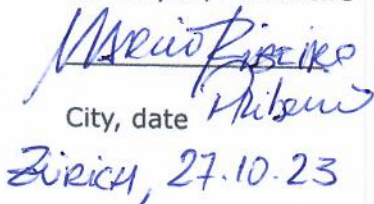 Marcio Ribeiro
City, date
Zürich, 27.10.23